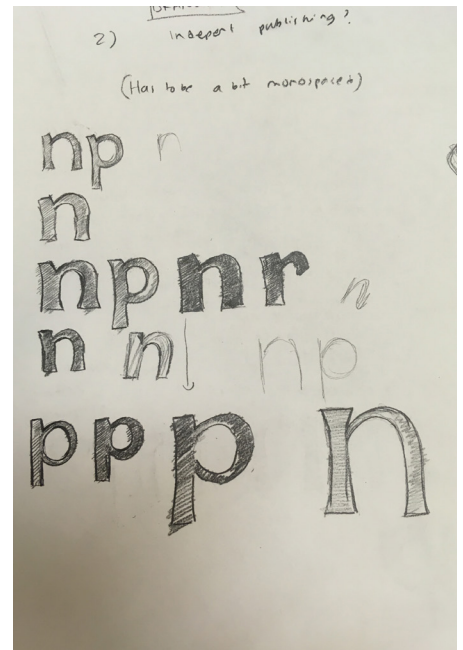 2) Indepent publishing?
(Has to be a bit monospaced)
np n
n
npnr n
n n n p
p p p n